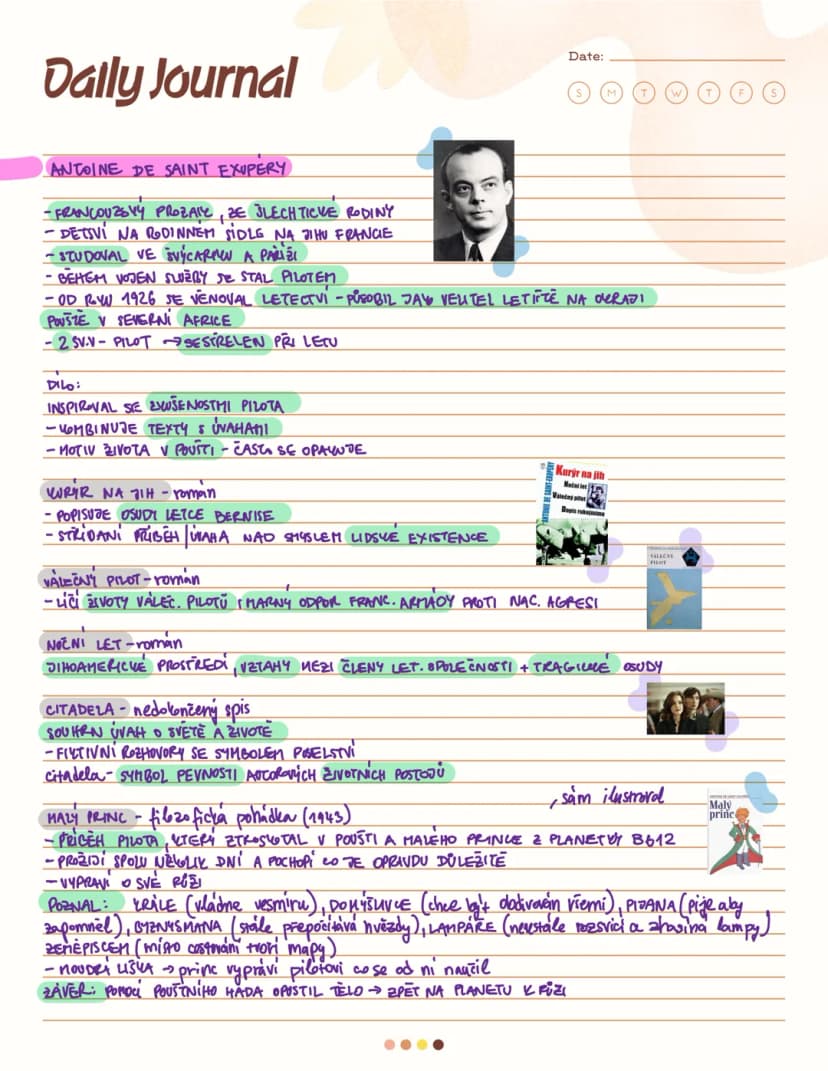 Daily Journal
Date:
S M T W T F S
ANTOINE DE SAINT EXUPÉRY
- FRANCOUZSKÝ PROZAIK, ZE ŠLECHTICKÉ RODINY
- DĚTSVÍ NA RODINNÉM SÍDLE NA JIHU FRANCIE
- STUDOVAL VE ŠVÝCARSKU A PAŘÍŽI
- BĚHEM VOJEN SLUŽBY SE STAL PILOTEM
- OD ROKU 1926 SE VĚNOVAL LETECTVÍ - PŮSOBIL JAKO VELITEL LETIŠTĚ NA OKRAJI
POUŠTĚ V SEVERNÍ AFRICE
- 2 SV.V - PILOT → SESTŘELEN PŘI LETU
DÍLO:
INSPIROVAL SE ZKUŠENOSTMI PILOTA
- KOMBINUJE TEXTY S ÚVAHAMI
- MOTIV ŽIVOTA V POUŠTI - ČASTO SE OPAKUJE
KURÝR NA JIH - román
- POPISUJE OSUDY LETCE BERNISE
- STŘÍDÁNÍ PŘÍBĚH | ÚVAHA NAD SMYSLEM LIDSKÉ EXISTENCE
Kurýr na jih
Noční let
Válečný pilot
Dopis rukojmímu
ANTOINE DE SAINT-EXUPÉRY
VÁLEČNÝ PILOT - román
- LÍČÍ ŽIVOTY VÁLEČ. PILOTŮ I MARNÝ ODPOR FRANC. ARMÁDY PROTI NAC. AGRESI
VÁLEČNÝ
PILOT
NOČNÍ LET - román
JIHOAMERICKÉ PROSTŘEDÍ, VZTAHY MEZI ČLENY LET. SPOLEČNOSTI + TRAGICKÉ OSUDY
CITADELA - nedokončený spis
SOUHRN ÚVAH O SVĚTĚ A ŽIVOTĚ
- FIKTIVNÍ ROZHOVORY SE SYMBOLEM POSELSTVÍ
citadela - SYMBOL PEVNOSTI AUTOROVÝCH ŽIVOTNÍCH POSTOJŮ
, sám ilustroval
MALÝ PRINC - filozofická pohádka (1943)
- PŘÍBĚH PILOTA, KTERÝ ZTROSKOTAL V POUŠTI A MALÉHO PRINCE Z PLANETKY B612
- PROŽIJÍ SPOLU NĚKOLIK DNÍ A POCHOPÍ CO JE OPRAVDU DŮLEŽITÉ
- VYPRAVÍ O SVÉ RŮŽI
Malý
princ
POZNAL: KRÁLE (vládne vesmíru), DOMÝŠLIVCE (chce být obdivován všemi), PIJANA (pije aby
zapomněl), BYZNYSMANA (stále přepočítává hvězdy), LAMPÁŘE (neustále rozsvicí a zhavíná lampy)
ZEMĚPISCEM (místo cestování tvoří mapy)
- MOUDRÁ LIŠKA → princ vypráví pilotovi co se od ní naučil
ZÁVĚR: POMOCÍ POUŠTNÍHO HADA OPUSTIL TĚLO → ZPĚT NA PLANETU K RŮŽI